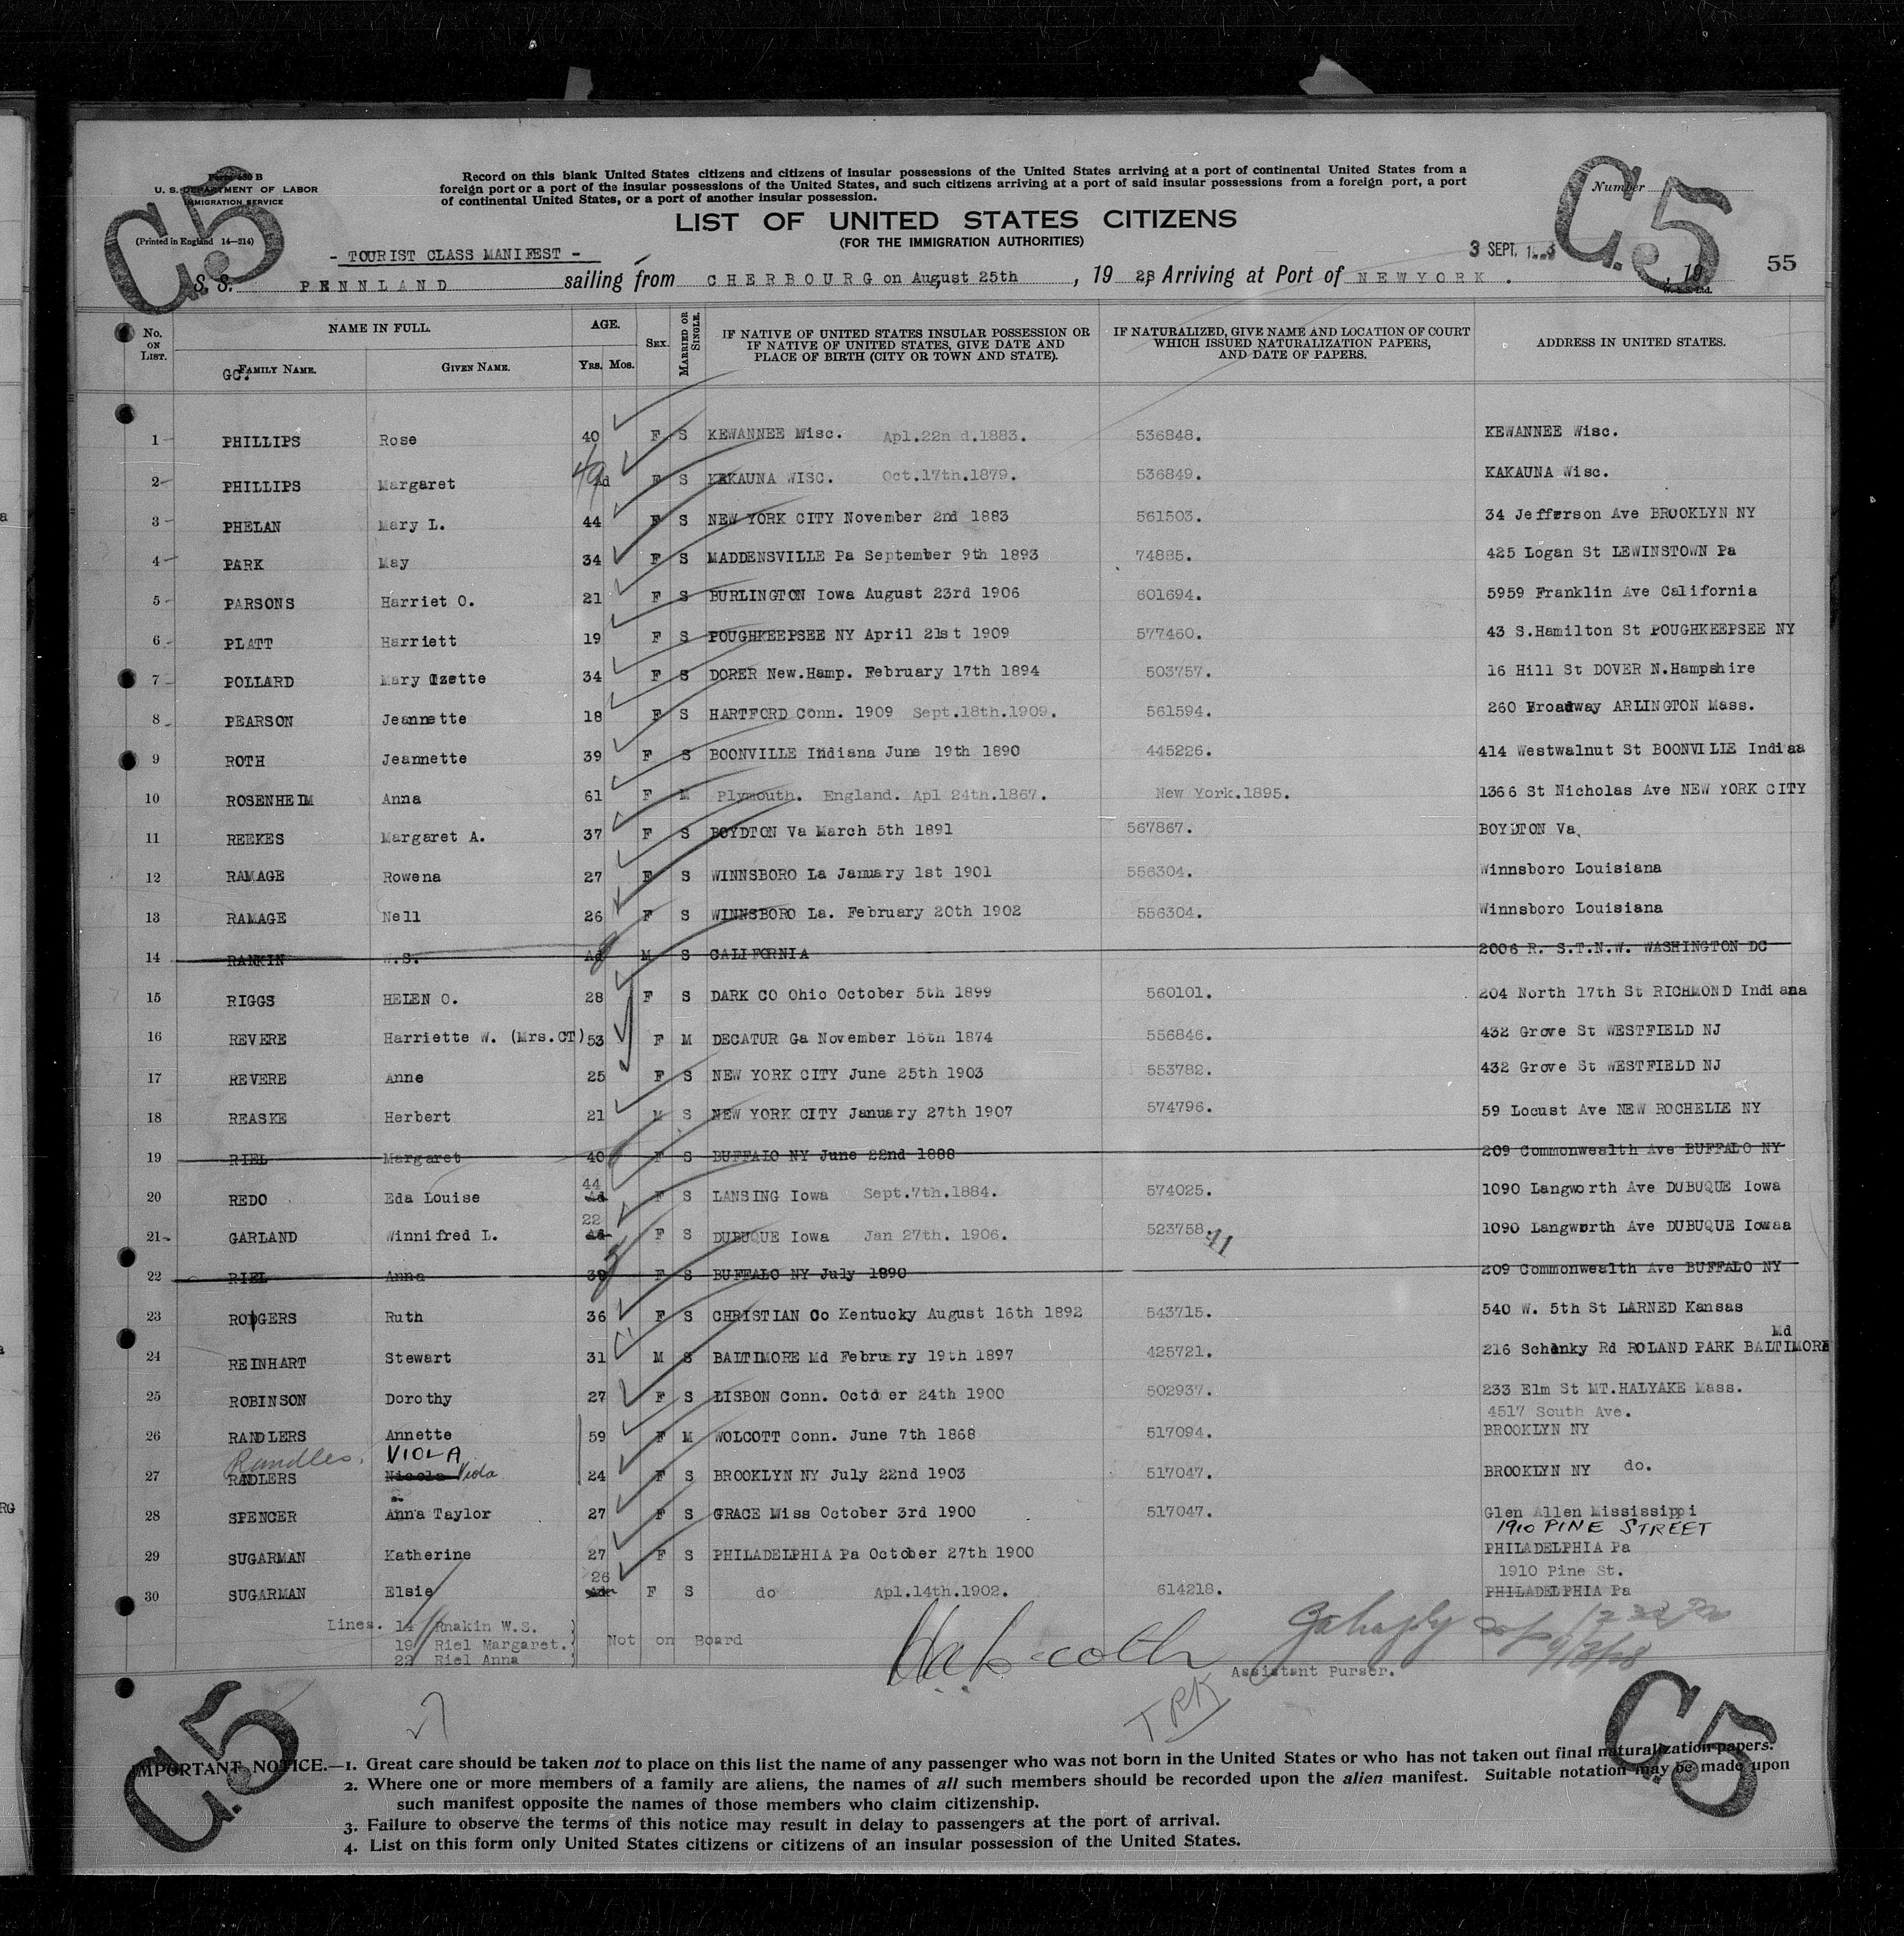 C.5
C.5
Form 630 B
U. S. DEPARTMENT OF LABOR
IMMIGRATION SERVICE
(Printed in England 14—214)
Record on this blank United States citizens and citizens of insular possessions of the United States arriving at a port of continental United States from a
foreign port or a port of the insular possessions of the United States, and such citizens arriving at a port of said insular possessions from a foreign port, a port
of continental United States, or a port of another insular possession.
Number
LIST OF UNITED STATES CITIZENS
(FOR THE IMMIGRATION AUTHORITIES)
- TOURIST CLASS MANIFEST -
3 SEPT.
55
S. S. PENNLAND sailing from CHERBOURG on August 25th, 19 28 Arriving at Port of NEWYORK . , 19
No. ON LIST. NAME IN FULL. AGE. SEX. MARRIED OR SINGLE. IF NATIVE OF UNITED STATES INSULAR POSSESSION OR IF NATIVE OF UNITED STATES, GIVE DATE AND PLACE OF BIRTH (CITY OR TOWN AND STATE). IF NATURALIZED, GIVE NAME AND LOCATION OF COURT WHICH ISSUED NATURALIZATION PAPERS, AND DATE OF PAPERS. ADDRESS IN UNITED STATES.
FAMILY NAME. GIVEN NAME. YRS. MOS.
1 PHILLIPS Rose 40 F S KEWANNEE Wisc. Apl.22n d.1883. 536848. KEWANNEE Wisc.
2 PHILLIPS Margaret 49 Ad F S KAKAUNA WISC. Oct.17th.1879. 536849. KAKAUNA Wisc.
3 PHELAN Mary L. 44 F S NEW YORK CITY November 2nd 1883 561503. 34 Jefferson Ave BROOKLYN NY
4 PARK May 34 F S MADDENSVILLE Pa September 9th 1893 74885. 425 Logan St LEWINSTOWN Pa
5 PARSONS Harriet O. 21 F S BURLINGTON Iowa August 23rd 1906 601694. 5959 Franklin Ave California
6 PLATT Harriett 19 F S POUGHKEEPSEE NY April 21st 1909 577460. 43 S.Hamilton St POUGHKEEPSEE NY
7 POLLARD Mary Ozette 34 F S DORER New.Hamp. February 17th 1894 503757. 16 Hill St DOVER N.Hampshire
8 PEARSON Jeannette 18 F S HARTFORD Conn. 1909 Sept.18th.1909. 561594. 260 Broadway ARLINGTON Mass.
9 ROTH Jeannette 39 F S BOONVILLE Indiana June 19th 1890 445226. 414 Westwalnut St BOONVILLE Indiaa
10 ROSENHEIM Anna 61 F M Plymouth. England. Apl 24th.1867. New York.1895. 1366 St Nicholas Ave NEW YORK CITY
11 REEKES Margaret A. 37 F S BOYDTON Va March 5th 1891 567867. BOYDTON Va.
12 RAMAGE Rowena 27 F S WINNSBORO La January 1st 1901 556304. Winnsboro Louisiana
13 RAMAGE Nell 26 F S WINNSBORO La. February 20th 1902 556304. Winnsboro Louisiana
14 RANKIN W.S. Ad M S CALIFORNIA 2006 R. S.T.N.W. WASHINGTON DC
15 RIGGS HELEN O. 28 F S DARK CO Ohio October 5th 1899 560101. 204 North 17th St RICHMOND Indiana
16 REVERE Harriette W. (Mrs.CT) 53 F M DECATUR Ga November 16th 1874 556846. 432 Grove St WESTFIELD NJ
17 REVERE Anne 25 F S NEW YORK CITY June 25th 1903 553782. 432 Grove St WESTFIELD NJ
18 REASKE Herbert 21 M S NEW YORK CITY January 27th 1907 574796. 59 Locust Ave NEW ROCHELLE NY
19 RIEL Margaret 40 F S BUFFALO NY June 22nd 1888 209 Commonwealth Ave BUFFALO NY
20 REDO Eda Louise 44 Ad F S LANSING Iowa Sept.7th.1884. 574025. 1090 Langworth Ave DUBUQUE Iowa
21 GARLAND Winnifred L. 22 Ad F S DUBUQUE Iowa Jan 27th. 1906. 523758. 41 1090 Langworth Ave DUBUQUE Iowaa
22 RIEL Anna 39 F S BUFFALO NY July 1890 209 Commonwealth Ave BUFFALO NY
23 RODGERS Ruth 36 F S CHRISTIAN Co Kentucky August 16th 1892 543715. 540 W. 5th St LARNED Kansas
24 REINHART Stewart 31 M S BALTIMORE Md February 19th 1897 425721. 216 Schenky Rd ROLAND PARK BALTIMORE Md
25 ROBINSON Dorothy 27 F S LISBON Conn. October 24th 1900 502937. 233 Elm St MT.HALYAKE Mass.
4517 South Ave.
26 RANDLERS Annette 59 F M WOLCOTT Conn. June 7th 1868 517094. BROOKLYN NY
Randles. VIOLA
27 RADLERS Nicola Viola 24 F S BROOKLYN NY July 22nd 1903 517047. BROOKLYN NY do.
28 SPENCER Anna Taylor 27 F S GRACE Miss October 3rd 1900 517047. Glen Allen Mississippi
1910 PINE STREET
29 SUGARMAN Katherine 27 F S PHILADELPHIA Pa October 27th 1900 PHILADELPHIA Pa
1910 Pine St.
30 SUGARMAN Elsie 26 Adn F S do Apl.14th.1902. 614218. PHILADELPHIA Pa
Lines. 14 Rnakin W.S.
19 Riel Margaret. Not on Board
22 Riel Anna
Assistant Purser.
TRK
C.5
C.5
IMPORTANT NOTICE.—1. Great care should be taken not to place on this list the name of any passenger who was not born in the United States or who has not taken out final naturalization papers.
2. Where one or more members of a family are aliens, the names of all such members should be recorded upon the alien manifest. Suitable notation may be made upon
such manifest opposite the names of those members who claim citizenship.
3. Failure to observe the terms of this notice may result in delay to passengers at the port of arrival.
4. List on this form only United States citizens or citizens of an insular possession of the United States.